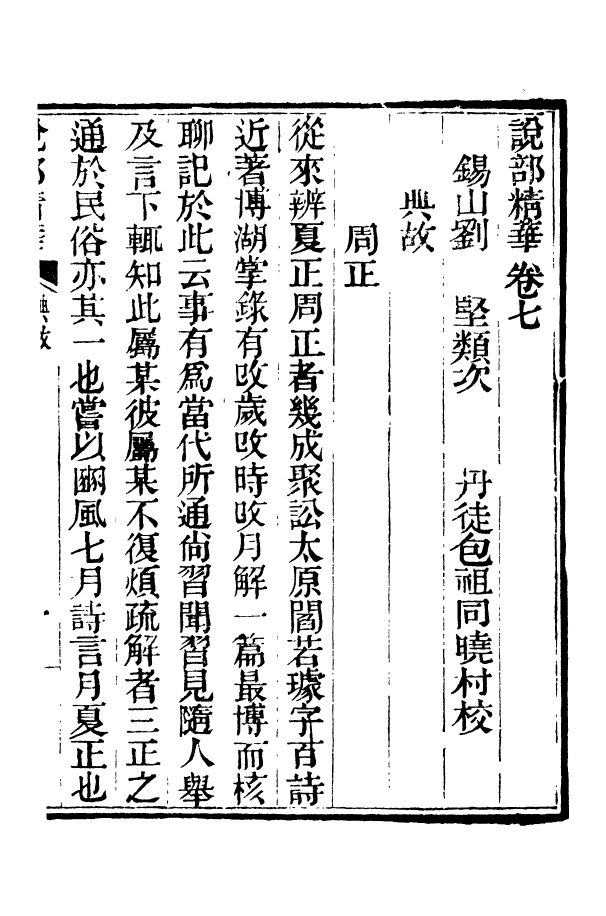 說部精華卷七
錫山劉　堅類次　丹徒包祖同曉村校
典故
周正
從來辨夏正周正者幾成聚訟太原閻若璩字百詩
近著博湖掌錄有攺歲攺時攺月解一篇最博而核
聊記於此云事有爲當代所通尙習聞習見隨人舉
及言下輒知此屬某彼屬某不復煩疏解者三正之
通於民俗亦其一也嘗以豳風七月詩言月夏正也
典故